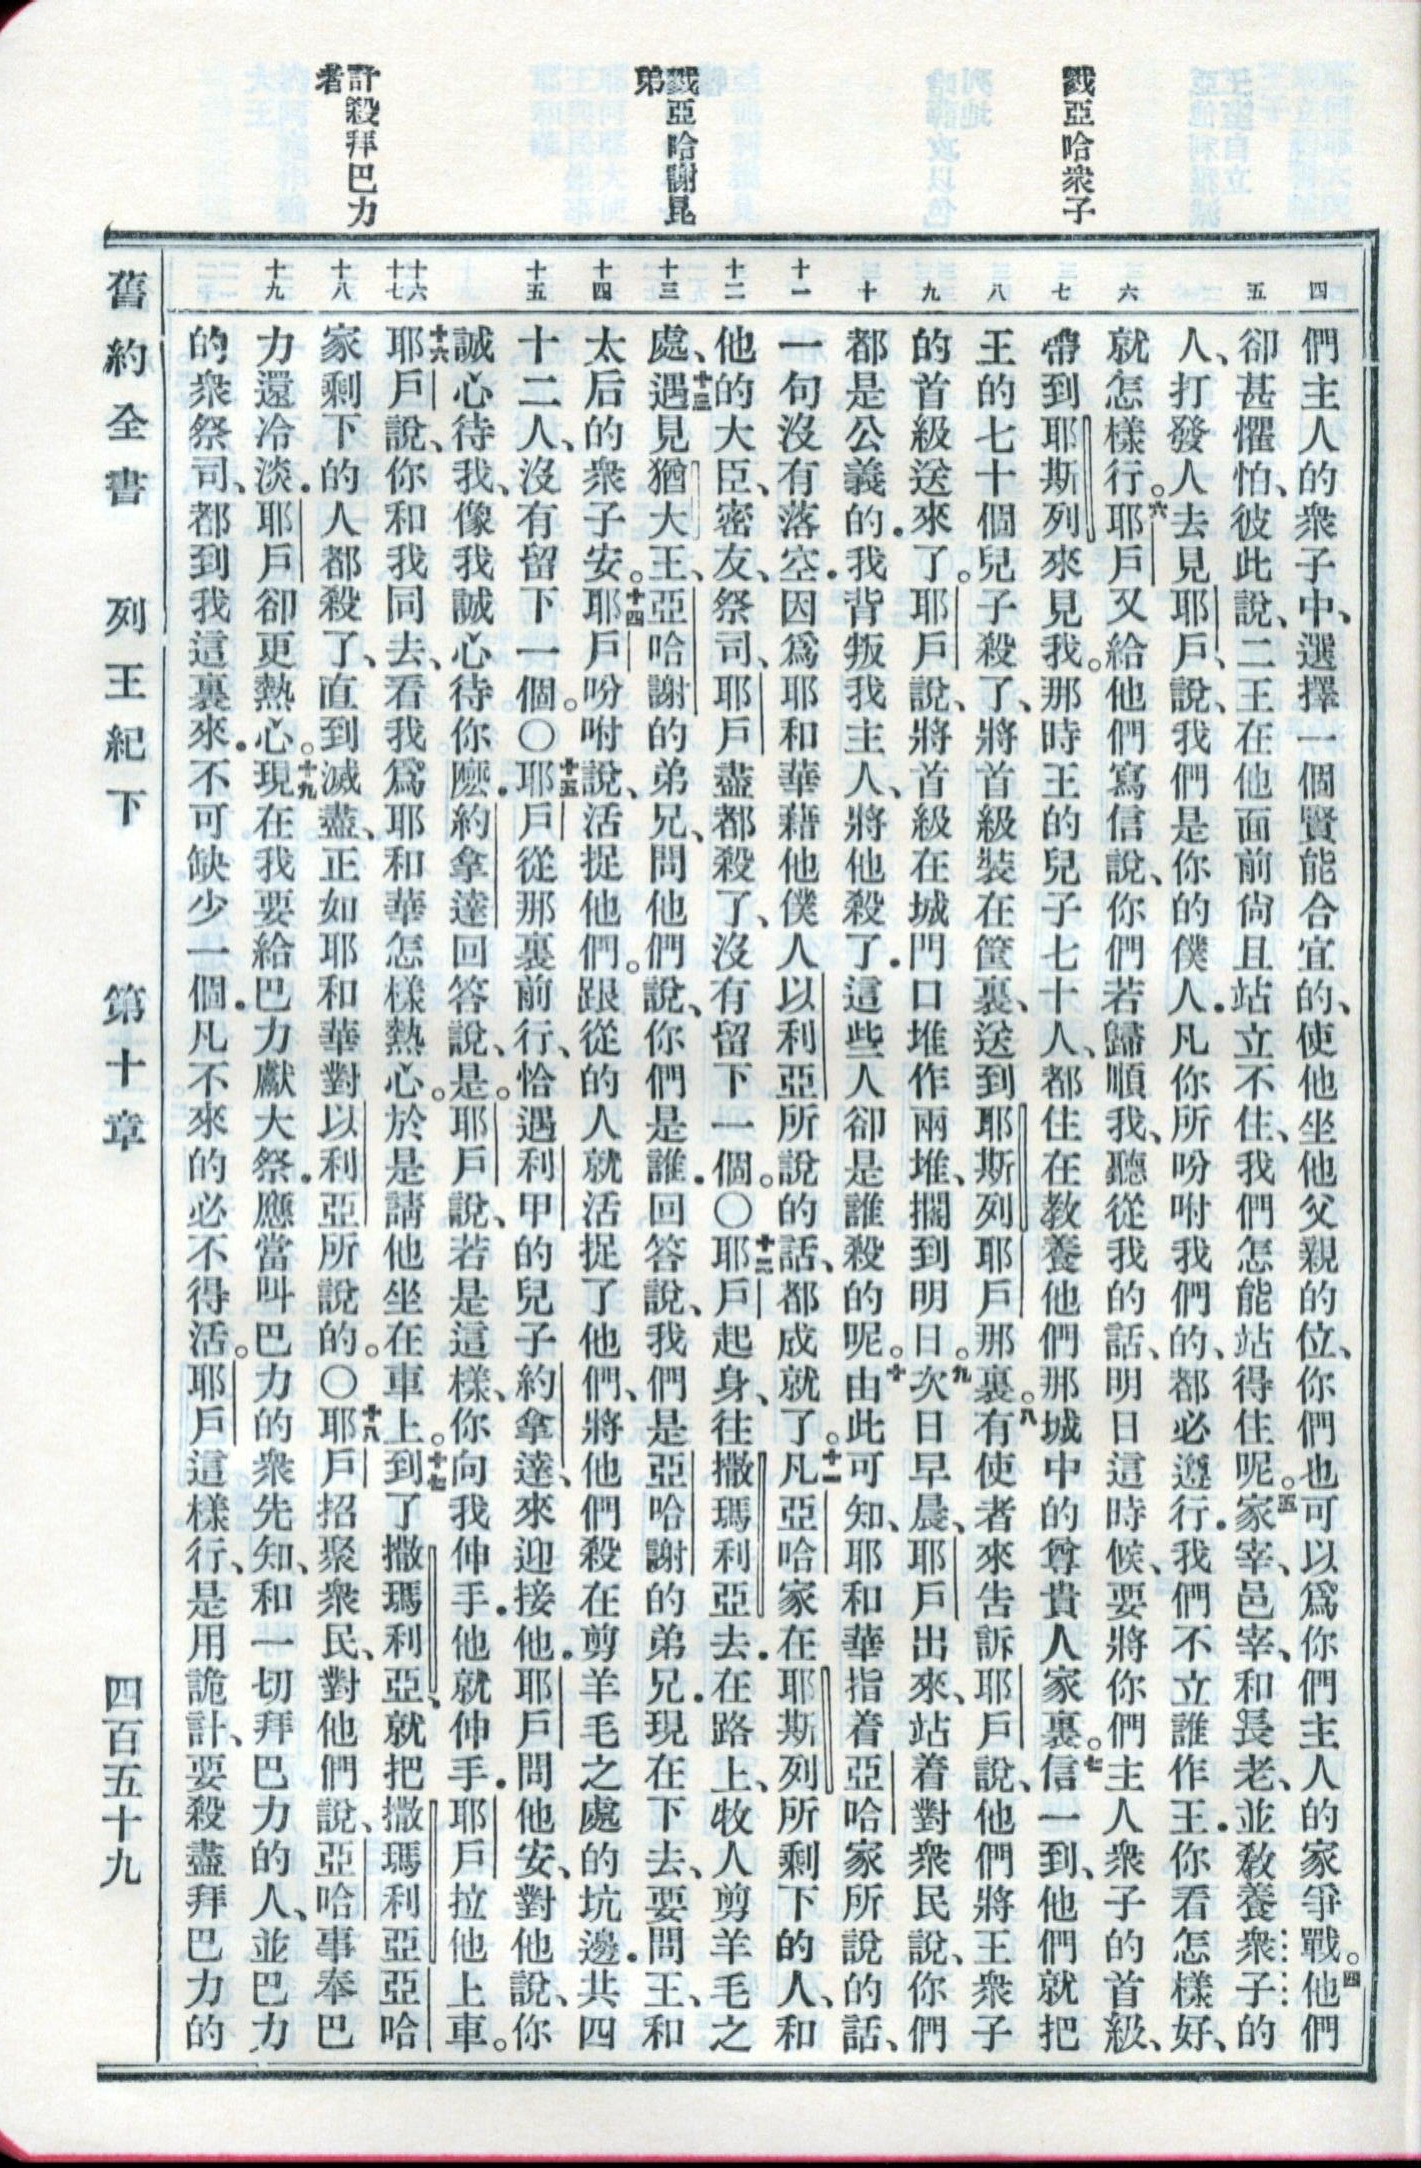 戮亞哈衆子
戮亞哈謝昆
弟
計殺拜巴力
者
四
五
六
七
八
九
十
十一
十二
十三
十四
十五
十六
十七
十八
十九
們主人的衆子中、選擇一個賢能合宜的、使他坐他父親的位、你們也可以爲你們主人的家爭戰。四他們
卻甚懼怕、彼此說、二王在他面前尙且站立不住、我們怎能站得住呢。五家宰、邑宰、和長老、並教養衆子的
人、打發人去見耶戶、說、我們是你的僕人．凡你所吩咐我們的、都必遵行．我們不立誰作王．你看怎樣好、
就怎樣行。六耶戶又給他們寫信說、你們若歸順我、聽從我的話、明日這時候、要將你們主人衆子的首級、
帶到耶斯列來見我。那時王的兒子七十人、都住在教養他們那城中的尊貴人家裏。七信一到、他們就把
王的七十個兒子殺了、將首級裝在筐裏、送到耶斯列耶戶那裏。八有使者來告訴耶戶說、他們將王衆子
的首級送來了。耶戶說、將首級在城門口堆作兩堆、擱到明日。九次日早晨、耶戶出來、站着對衆民說、你們
都是公義的．我背叛我主人、將他殺了．這些人卻是誰殺的呢。十由此可知、耶和華指着亞哈家所說的話、
一句沒有落空．因爲耶和華藉他僕人以利亞所說的話、都成就了。十一凡亞哈家在耶斯列所剩下的人、和
他的大臣、密友、祭司、耶戶盡都殺了、沒有留下一個。〇十二耶戶起身、往撒瑪利亞去．在路上、牧人剪羊毛之
處、十三遇見猶大王、亞哈謝的弟兄、問他們說、你們是誰．回答說、我們是亞哈謝的弟兄．現在下去、要問王、和
太后的衆子安。十四耶戶吩咐說、活捉他們。跟從的人就活捉了他們、將他們殺在剪羊毛之處的坑邊．共四
十二人、沒有留下一個。〇十五耶戶從那裏前行、恰遇利甲的兒子約拿達、來迎接他．耶戶問他安、對他說、你
誠心待我、像我誠心待你麼．約拿達回答說、是。耶戶說、若是這樣、你向我伸手．他就伸手．耶戶拉他上車。
十六耶戶說、你和我同去、看我爲耶和華怎樣熱心。於是請他坐在車上。十七到了撒瑪利亞、就把撒瑪利亞亞哈
家剩下的人都殺了、直到滅盡、正如耶和華對以利亞所說的。〇十八耶戶招聚衆民、對他們說、亞哈事奉巴
力還冷淡．耶戶卻更熱心。十九現在我要給巴力獻大祭．應當叫巴力的衆先知、和一切拜巴力的人、並巴力
的衆祭司、都到我這裏來．不可缺少一個．凡不來的必不得活。耶戶這樣行、是用詭計、要殺盡拜巴力的
舊約全書　列王紀下　第十章　四百五十九